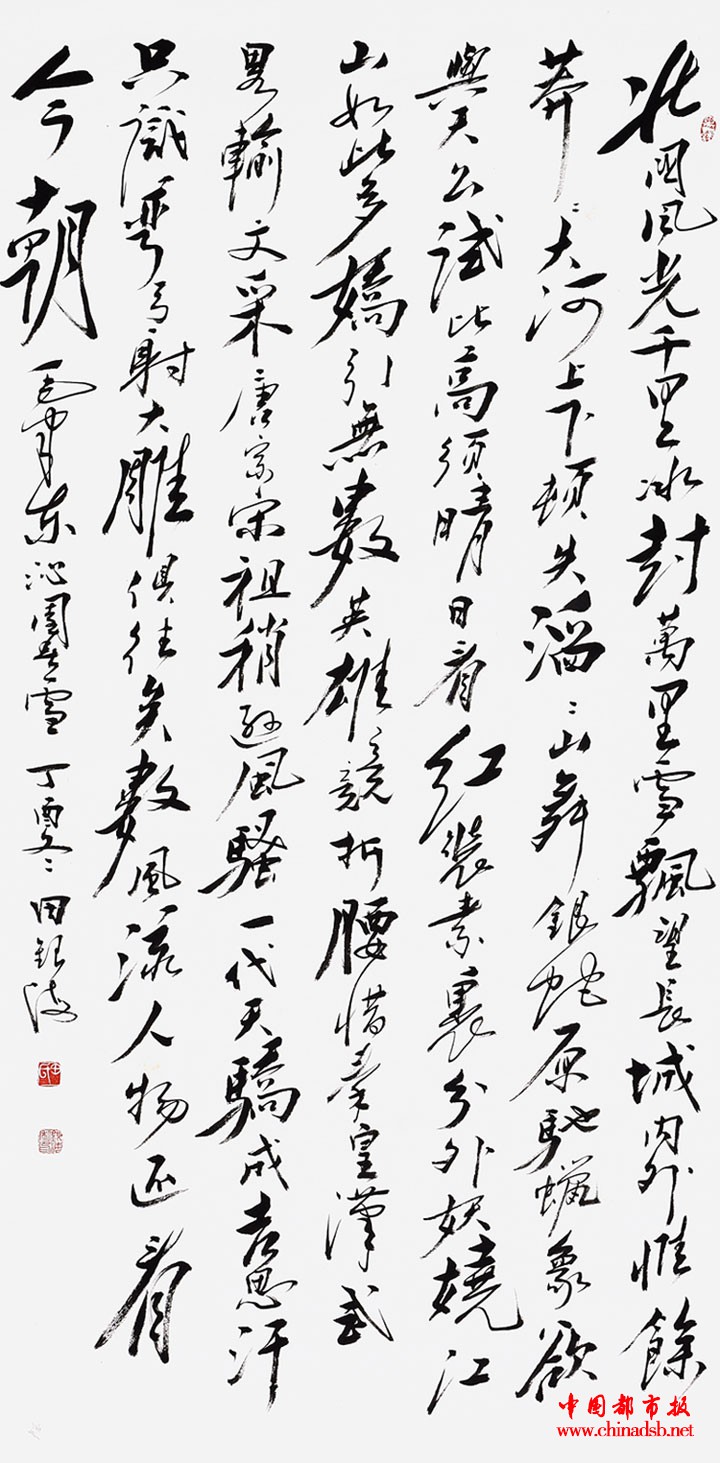 北國風光千里冰封萬里雪飄望長城內外惟餘
莽〻大河上下頓失滔〻山舞銀蛇原馳蠟象欲
與天公試比高須晴日看紅裝素裹分外妖嬈江
山如此多嬌引無數英雄競折腰惜秦皇漢武
畧輸文采唐宗宋祖稍遜風騷一代天驕成吉思汗
只識彎弓射大雕俱往矣數風流人物還看
今朝 毛澤東沁園春雪 丁酉冬 田銀海
中国都市报
www.chinadsb.net